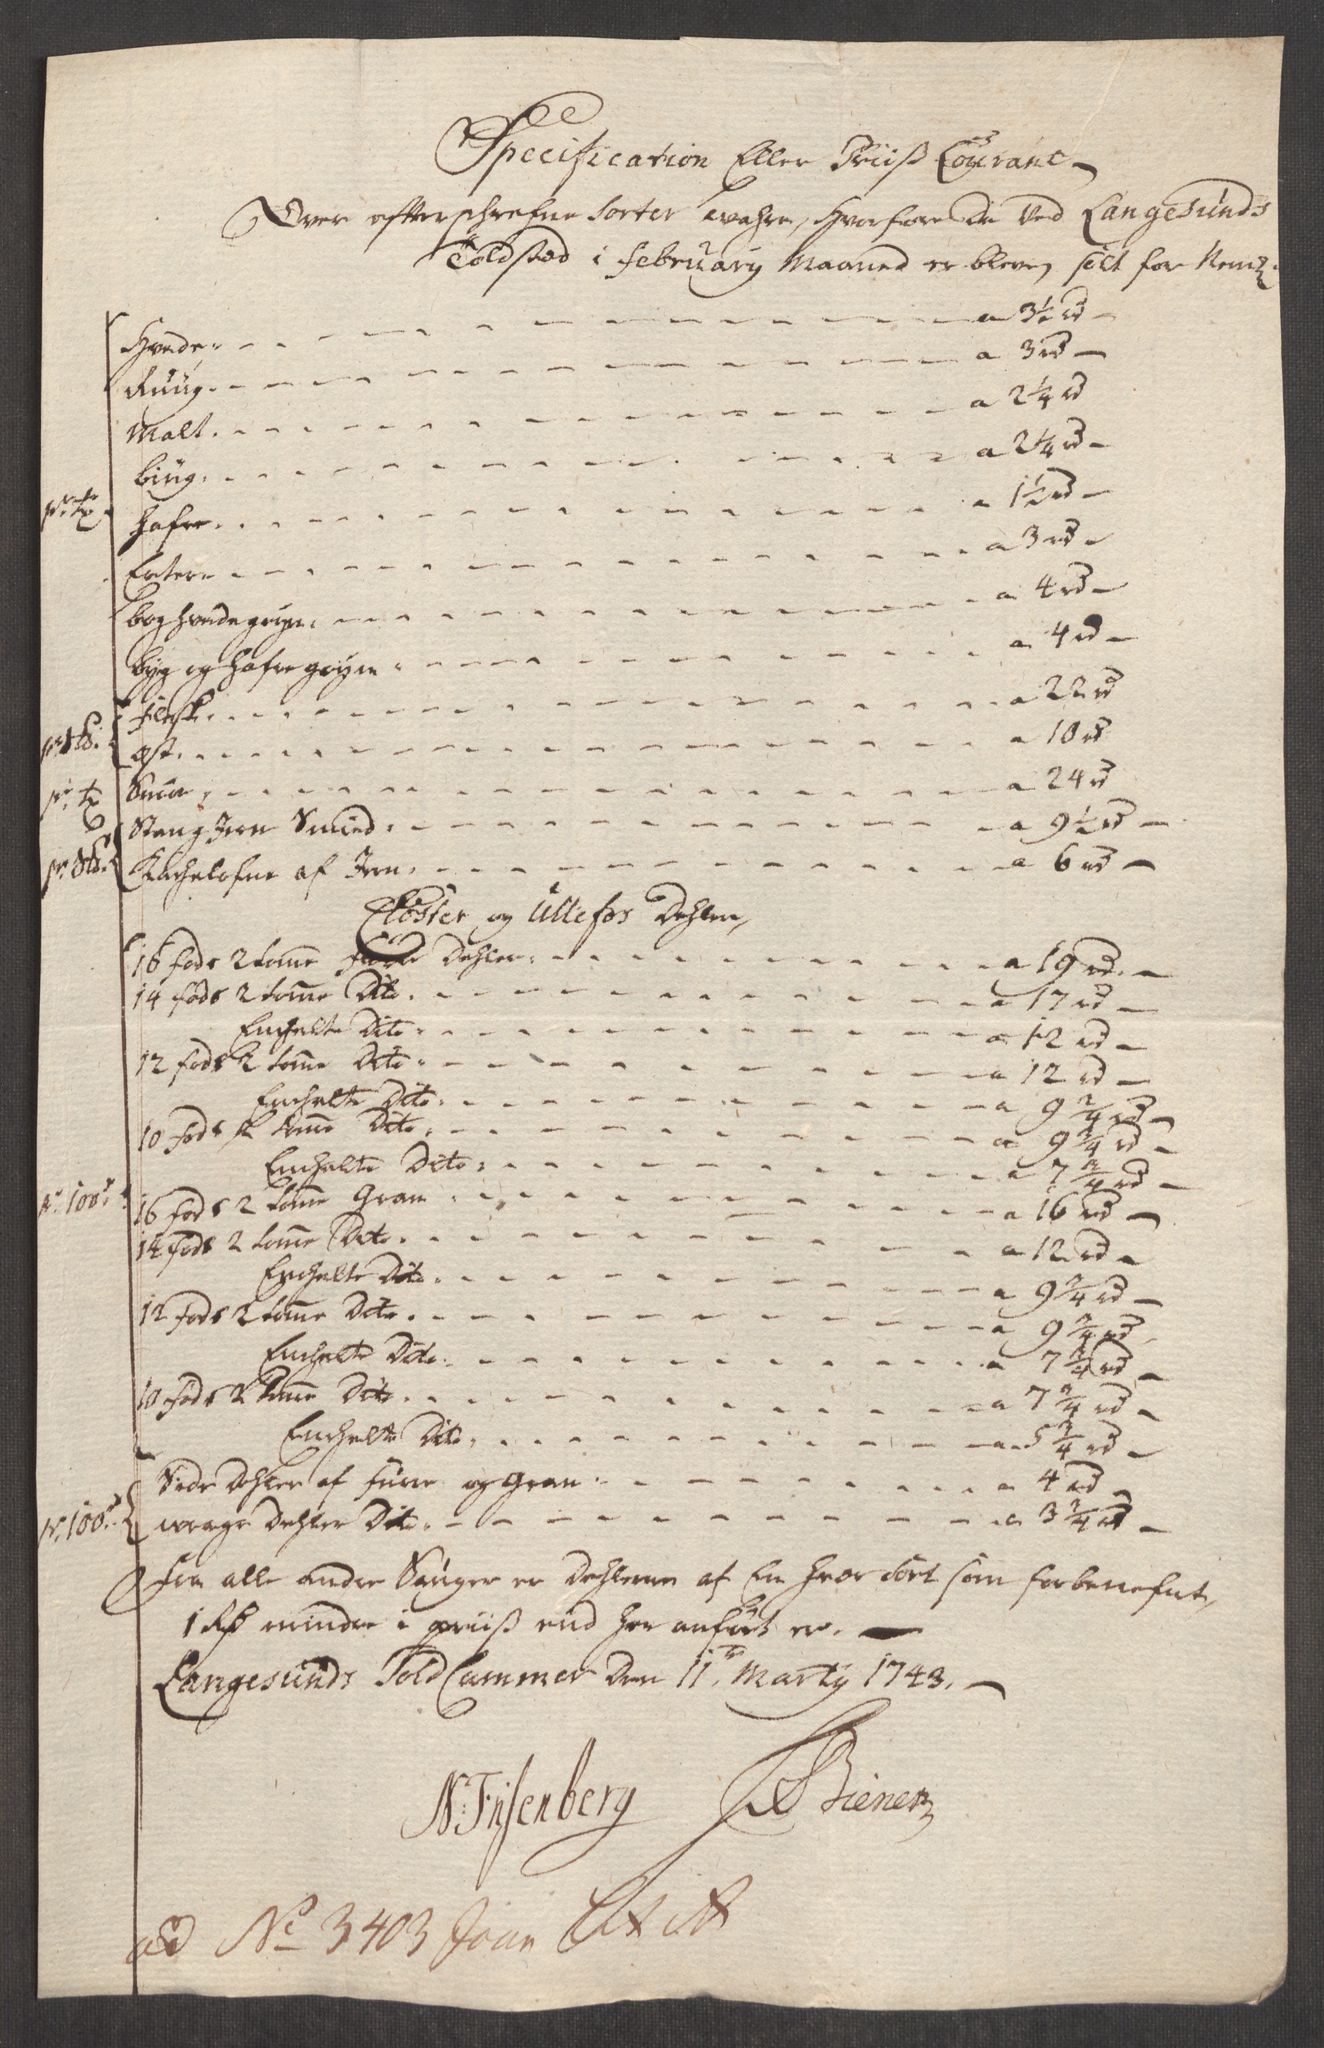 Specification Eller Priiß Courant
Over efterschrefne Sorter wahre, hvorfore de ved Langesunds
Toldsted i February Maaned er bleven selt for Neml:
Hvede a 3½ rd
Ruug a 3 rd
Malt a 2¼ rd
biug a 2¼ rd
pr. tr hafre a 1½ rd
Erter a 3 rd
boghvede gryn a 4 rd
byg og hafre gryn a 4 rd
Flesk a 22 rd
pr. st. ost a 10 rd
pr. tr Smør a 24 rd
Stang Jern Smied a 9½ rd
pr. st. Kachelofne af Jern a 6 rd
Closter og Ullefos Dehler,
16 fods 2 tomme Furre Dehler a 19 rd
14 fods 2 tomme Dito a 17 rd
Enchelte Dito a 12 rd
12 fods 2 tomme Dito a 12 rd
Enchelte Dito a 9 2/4 rd
10 fods 2 tomme Dito a 9 3/4 rd
Enchelte Dito a 7 3/4 rd
pr. 100de 16 fods 2 tomme Gran a 16 rd
14 fods 2 tomme Dito a 12 rd
Enchelte Dito a 9 3/4 rd
12 fods 2 tomme Dito a 9 3/4 rd
Enchelte Dito a 7 3/4 rd
10 fods 2 tomme Dito a 7 3/4 rd
Enchelte Dito a 5 3/4 rd
Side Dehler af furre og Gran a 4 rd
pr. 100de wrage Dehler Dito a 3 3/4 rd
Fra alle andre Sauger er Dehlerne af En hver Sort som forbenefnt,
1 Rd mindre i priiß end her anført er.
Langesunds Told Cammer Den 11te Marty 1743.
N: Tyssenberg Biener
ad No 3403